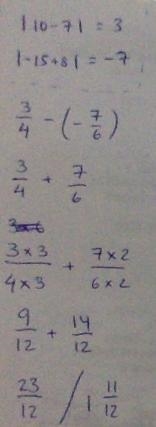 |10-7| = 3
|-15+8| = -7
3/4 - (- 7/6)
3/4 + 7/6
3×3/4×3 + 7×2/6×2
9/12 + 14/12
23/12 / 1 11/12